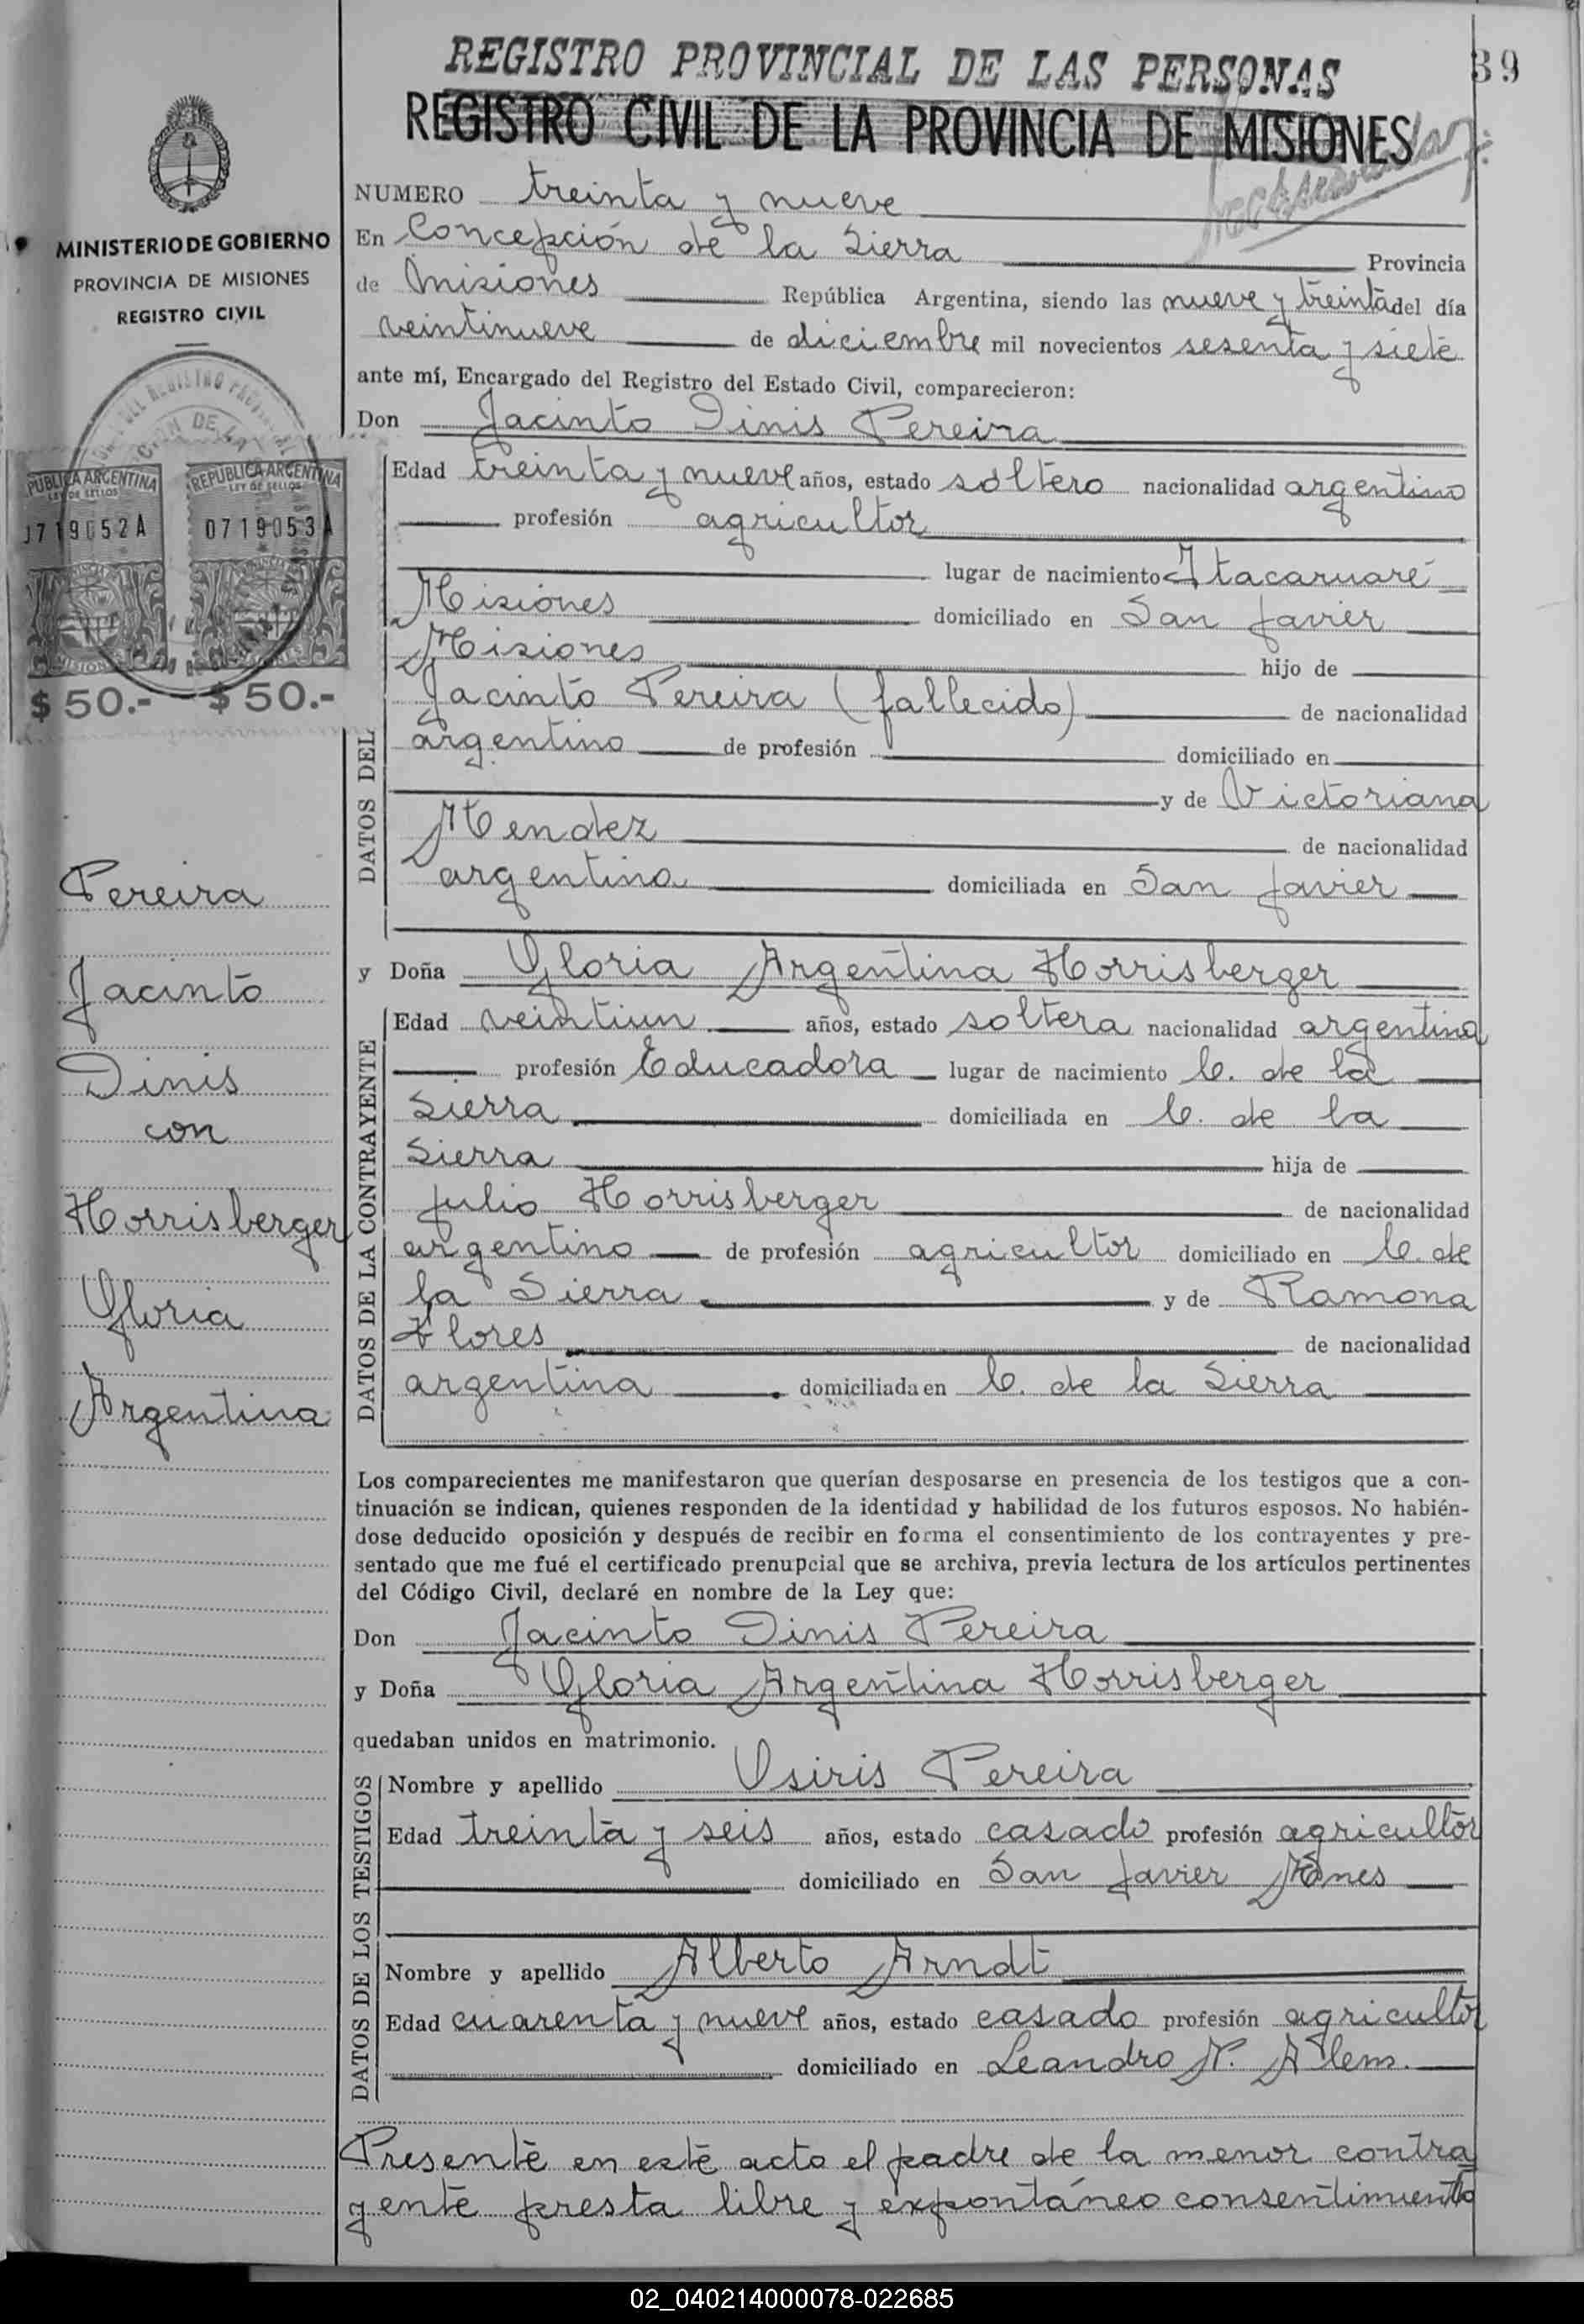 REGISTRO PROVINCIAL DE LAS PERSONAS
39
REGISTRO CIVIL DE LA PROVINCIA DE MISIONES
MINISTERIO DE GOBIERNO
PROVINCIA DE MISIONES
REGISTRO CIVIL
REPUBLICA ARGENTINA
LEY DE SELLOS
0719053A
$50.- $50.-
Pereira
Jacinto
Dinis
con
Horrisberger
Gloria
Argentina
NUMERO treinta y nueve
En Concepción de la Sierra Provincia
de Misiones República Argentina, siendo las nueve y treinta del día
veintinueve de diciembre mil novecientos sesenta y siete
ante mí, Encargado del Registro del Estado Civil, comparecieron:
Don Jacinto Dinis Pereira
DATOS DEL
Edad treinta y nueve años, estado soltero nacionalidad argentino
profesión agricultor
lugar de nacimiento Itacaruaré
Misiones domiciliado en San Javier
Misiones hijo de
Jacinto Pereira (fallecido) de nacionalidad
argentino de profesión domiciliado en
y de Victoriana
Mendez de nacionalidad
argentina domiciliada en San Javier
y Doña Gloria Argentina Horrisberger
DATOS DE LA CONTRAYENTE
Edad veintiun años, estado soltera nacionalidad argentina
profesión Educadora lugar de nacimiento C. de la
Sierra domiciliada en C. de la
Sierra hija de
Julio Horrisberger de nacionalidad
argentino de profesión agricultor domiciliado en C. de
la Sierra y de Ramona
Flores de nacionalidad
argentina domiciliada en C. de la Sierra
Los comparecientes me manifestaron que querían desposarse en presencia de los testigos que a con-
tinuación se indican, quienes responden de la identidad y habilidad de los futuros esposos. No habién-
dose deducido oposición y después de recibir en forma el consentimiento de los contrayentes y pre-
sentado que me fué el certificado prenupcial que se archiva, previa lectura de los artículos pertinentes
del Código Civil, declaré en nombre de la Ley que:
Don Jacinto Dinis Pereira
y Doña Gloria Argentina Horrisberger
quedaban unidos en matrimonio.
DATOS DE LOS TESTIGOS
Nombre y apellido Osiris Pereira
Edad treinta y seis años, estado casado profesión agricultor
domiciliado en San Javier Mnes
Nombre y apellido Alberto Arndt
Edad cuarenta y nueve años, estado casado profesión agricultor
domiciliado en Leandro N. Alem.
Presente en este acto el padre de la menor contra
yente presta libre y expontáneo consentimiento
02_040214000078-022685